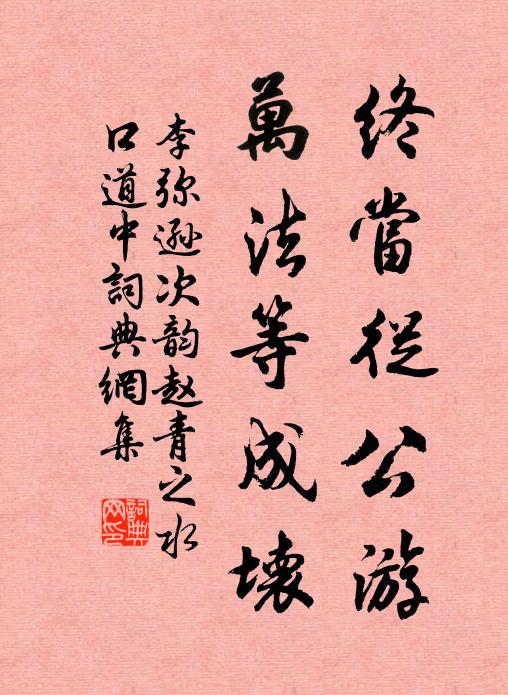 終當從公游
萬法等成壞
李弥遜次韵赵青之水
口道中詞典網集
詞典
网印